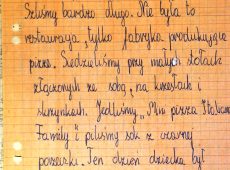 Szliśmy bardzo długo. Nie była to
restauracja tylko fabryka produkująca
pizze. Siedzieliśmy przy małych stołach
złączonych ze sobą, na krzesłach i
skrzynkach. Jedliśmy „Mro pizza Italiana
Family" i piliśmy sok z czarnej
porzeczki. Ten dzień dziecka był